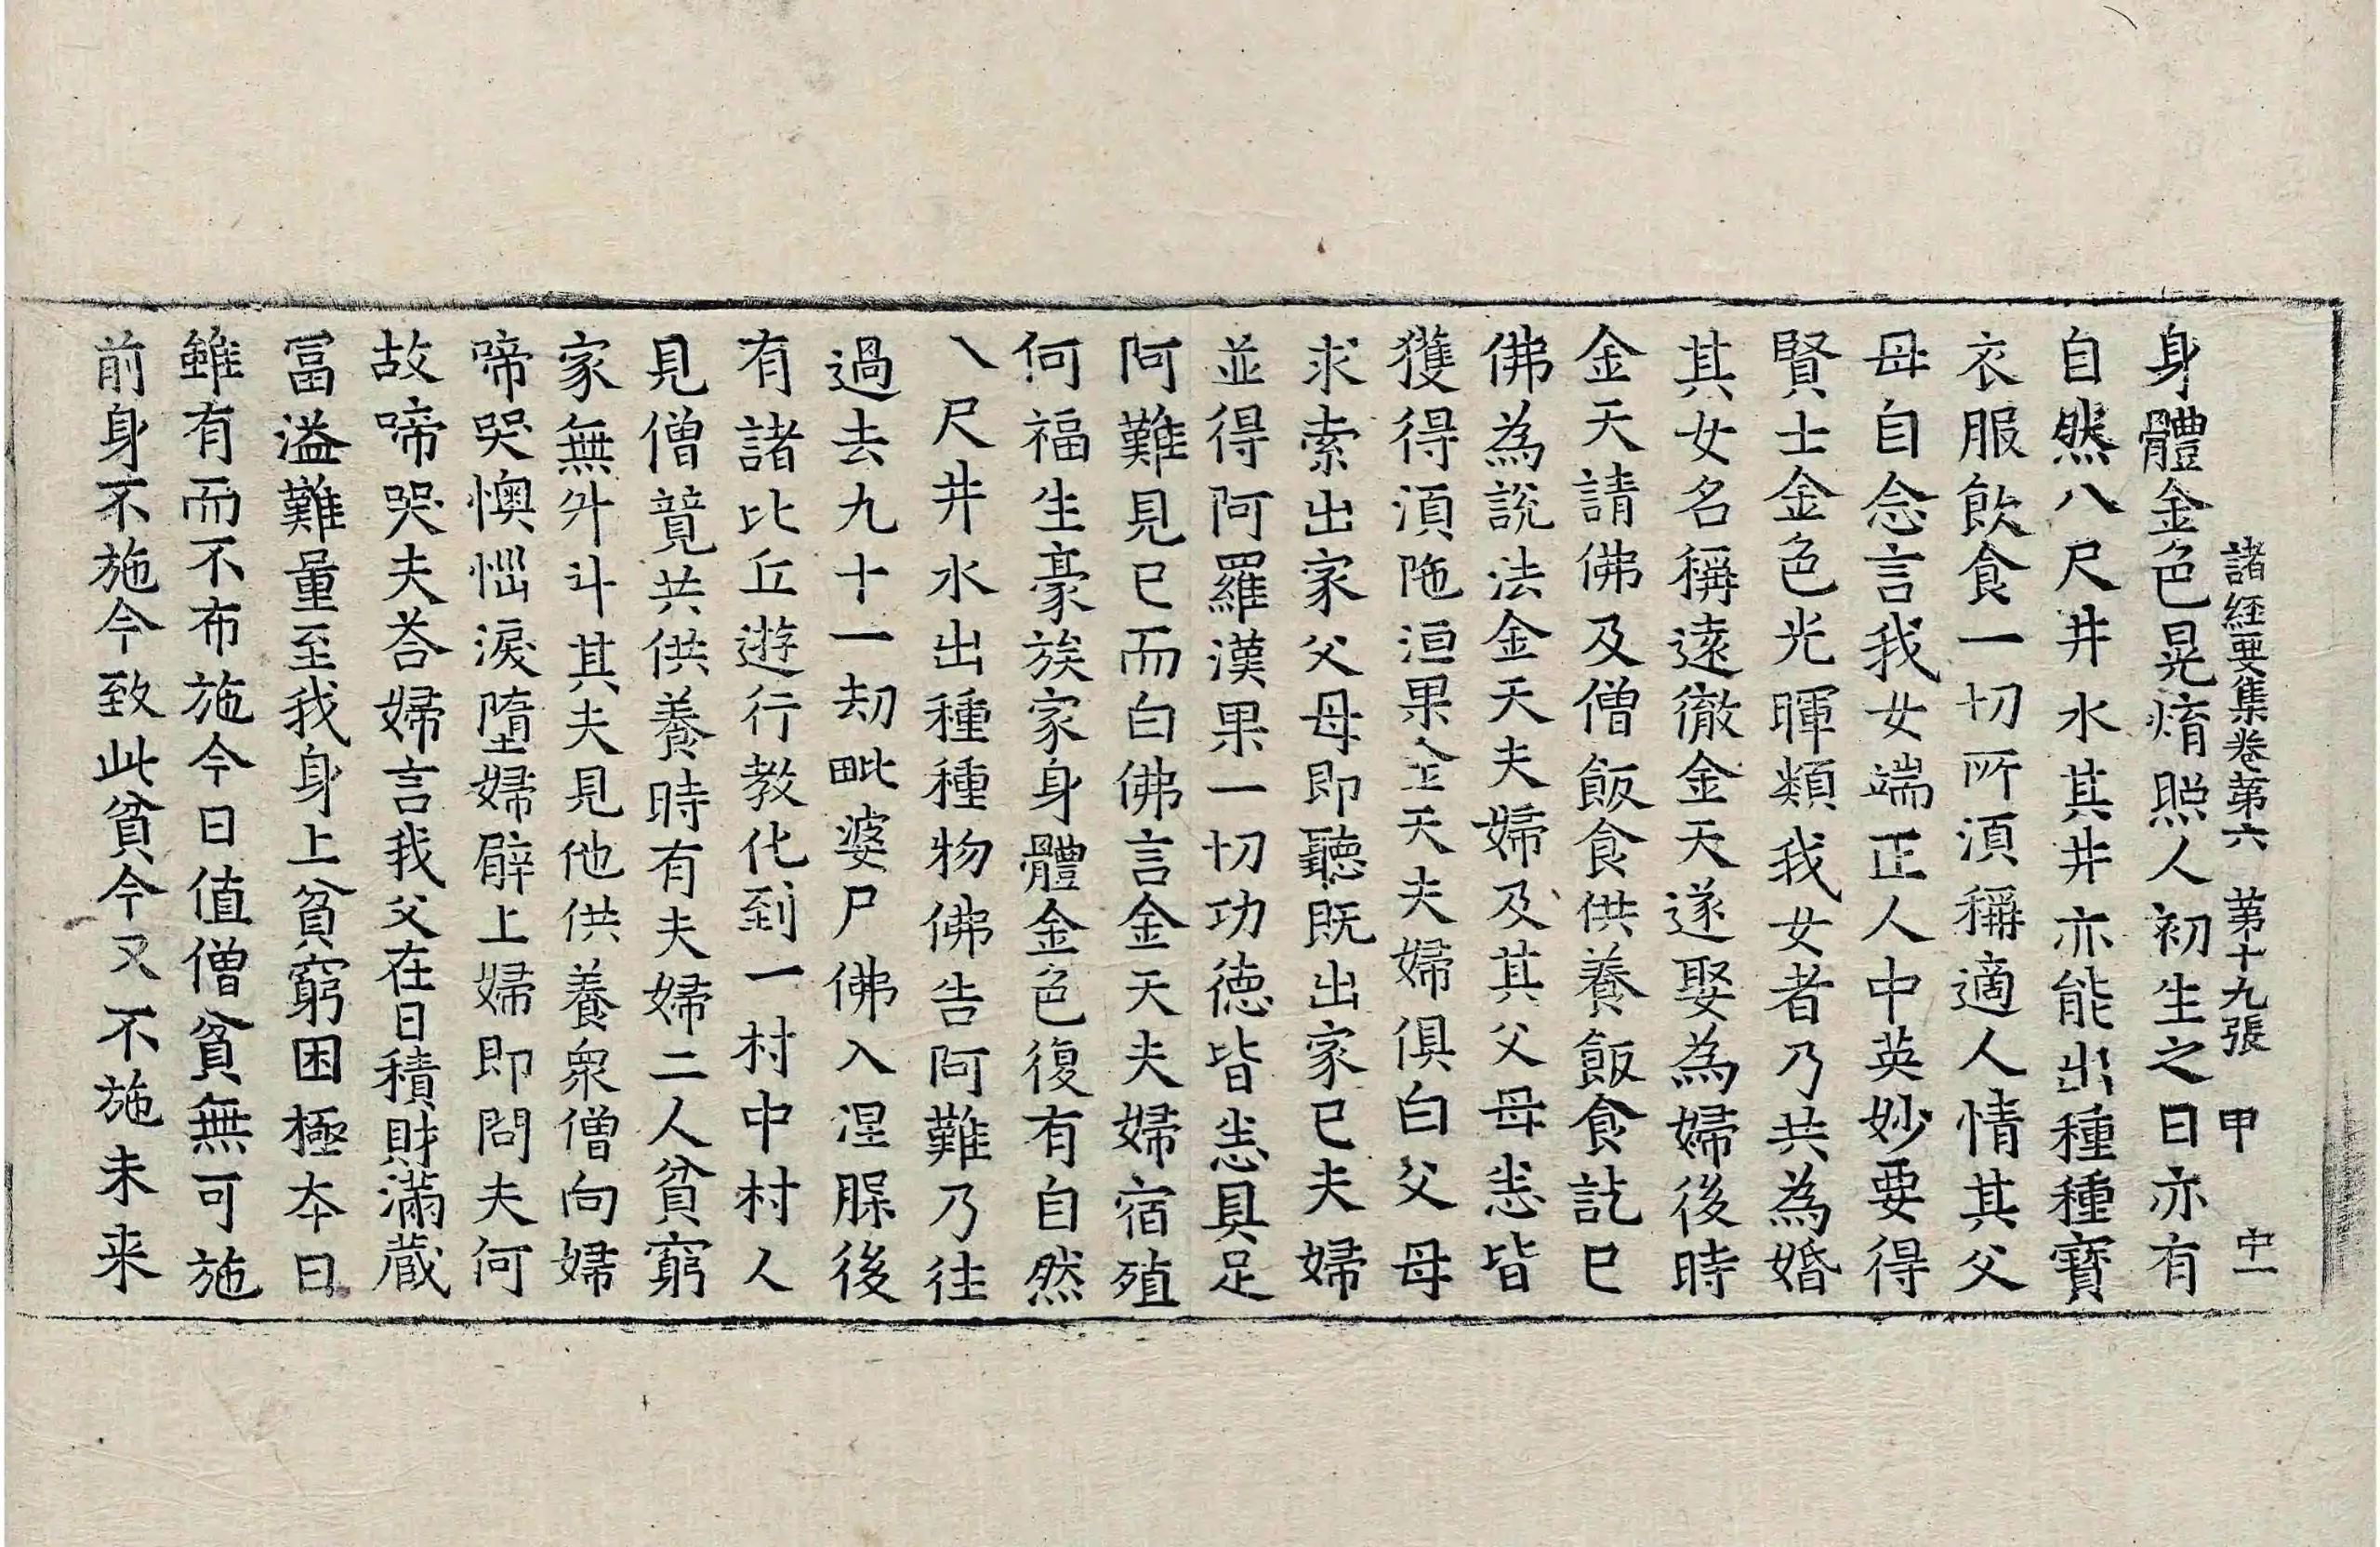 諸經要集卷第六　第十九張　甲　中一
身體金色晃煟照人初生之日亦有
自然八尺井水其井亦能出種種寶
衣服飲食一切所湏稱適人情其父
母自念言我女端正人中英妙要得
賢士金色光暉類我女者乃共為婚
其女名稱遠徹金天遂娶為婦後時
金天請佛及僧飯食供養飯食訖已
佛為說法金天夫婦及其父母悉皆
獲得湏陁洹果金天夫婦俱白父母
求索出家父母即聽既出家已夫婦
並得阿羅漢果一切功德皆悉具足
阿難見已而白佛言金天夫婦宿殖
何福生豪族家身體金色復有自然
八尺井水出種種物佛告阿難乃往
過去九十一劫毗婆尸佛入涅脲後
有諸比丘遊行教化到一村中村人
見僧競共供養時有夫婦二人貧窮
家無升斗其夫見他供養衆僧向婦
啼哭懊惱淚墮婦臂上婦即問夫何
故啼哭夫荅婦言我父在日積財滿藏
冨溢難量至我身上貧窮困極夲日
雖有而不布施今日值僧貧無可施
前身不施今致此貧今又不施未来